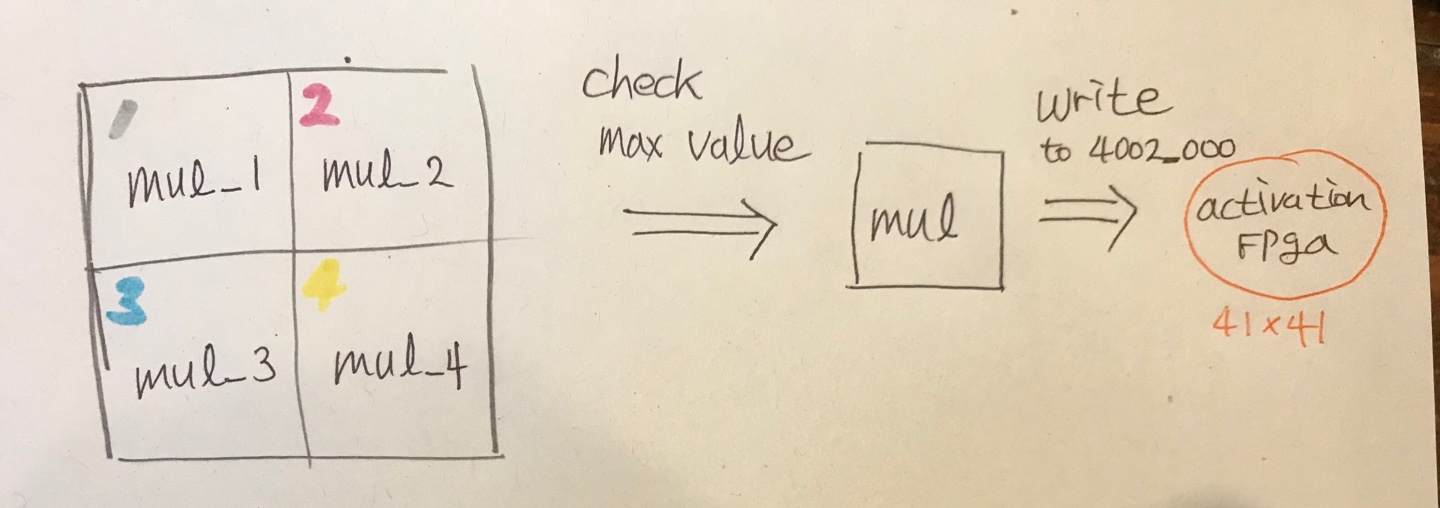 1
2
mul_1
mul_2
3
4
mul_3
mul_4
check
max value
mul
write
to 4002_000
activation
FPga
41x41